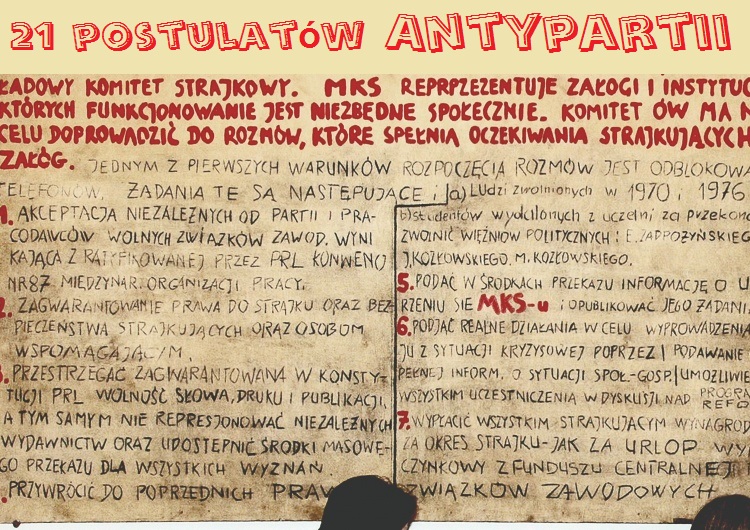 21 POSTULATÓW ANTYPARTII
ŁADOWY KOMITET STRAJKOWY. MKS REPRPZEZENTUJE ZAŁOGI I INSTYTUC
KTÓRYCH FUNKCJONOWANIE JEST NIEZBĘDNE SPOŁECZNIE. KOMITET ÓW MA N
CELU DOPROWADZIĆ DO ROZMÓW, KTÓRE SPEŁNIĄ OCZEKIWANIA STRAJKUJĄCYCH
ZAŁÓG. JEDNYM Z PIERWSZYCH WARUNKÓW ROZPOCZĘCIA ROZMÓW JEST ODBLOKOWA
TELEFONÓW. ŻĄDANIA TE SĄ NASTĘPUJĄCE:
1. AKCEPTACJA NIEZALEŻNYCH OD PARTII I PRA-
CODAWCÓW WOLNYCH ZWIĄZKÓW ZAWOD. WYNI
KAJĄCA Z RATYFIKOWANEJ PRZEZ PRL KONWENCJ
NR 87 MIĘDZYNAR. ORGANIZACJI PRACY.
2. ZAGWARANTOWANIE PRAWA DO STRAJKU ORAZ BEZ
PIECZEŃSTWA STRAJKUJĄCYCH ORAZ OSOBOM
WSPOMAGAJĄCYM.
3. PRZESTRZEGAĆ ZAGWARANTOWANĄ W KONSTY-
TUCJI PRL WOLNOŚĆ SŁOWA, DRUKU I PUBLIKACJI,
A TYM SAMYM NIE REPRESJONOWAĆ NIEZALEŻNYCH
WYDAWNICTW ORAZ UDOSTĘPNIĆ ŚRODKI MASOWE-
GO PRZEKAZU DLA WSZYSTKICH WYZNAŃ.
PRZYWRÓCIĆ DO POPRZEDNICH PRAW
a) Ludzi zwolnionych w 1970 i 1976
b) studentów wydalonych z uczelni za przekona
ZWOLNIĆ WIĘŹNIÓW POLITYCZNYCH: E. ZADROŻYŃSKIEG
J. KOZŁOWSKIEGO, M. KOZŁOWSKIEGO.
5. PODAĆ W ŚRODKACH PRZEKAZU INFORMACJĘ O U
RZENIU SIĘ MKS-u i OPUBLIKOWAĆ JEGO ŻĄDANI
6. PODJĄĆ REALNE DZIAŁANIA W CELU WYPROWADZENIA
JU Z SYTUACJI KRYZYSOWEJ POPRZEZ PODAWANIE
PEŁNEJ INFORM. O SYTUACJI SPOŁ.-GOSP. UMOŻLIWIE
WSZYSTKIM UCZESTNICZENIA W DYSKUSJI NAD PROGRA
REFO
7. WYPŁACIĆ WSZYSTKIM STRAJKUJĄCYM WYNAGROD
ZA OKRES STRAJKU - JAK ZA URLOP WY
CZYNKOWY Z FUNDUSZU CENTRALNEJ
ZWIĄZKÓW ZAWODOWYCH.